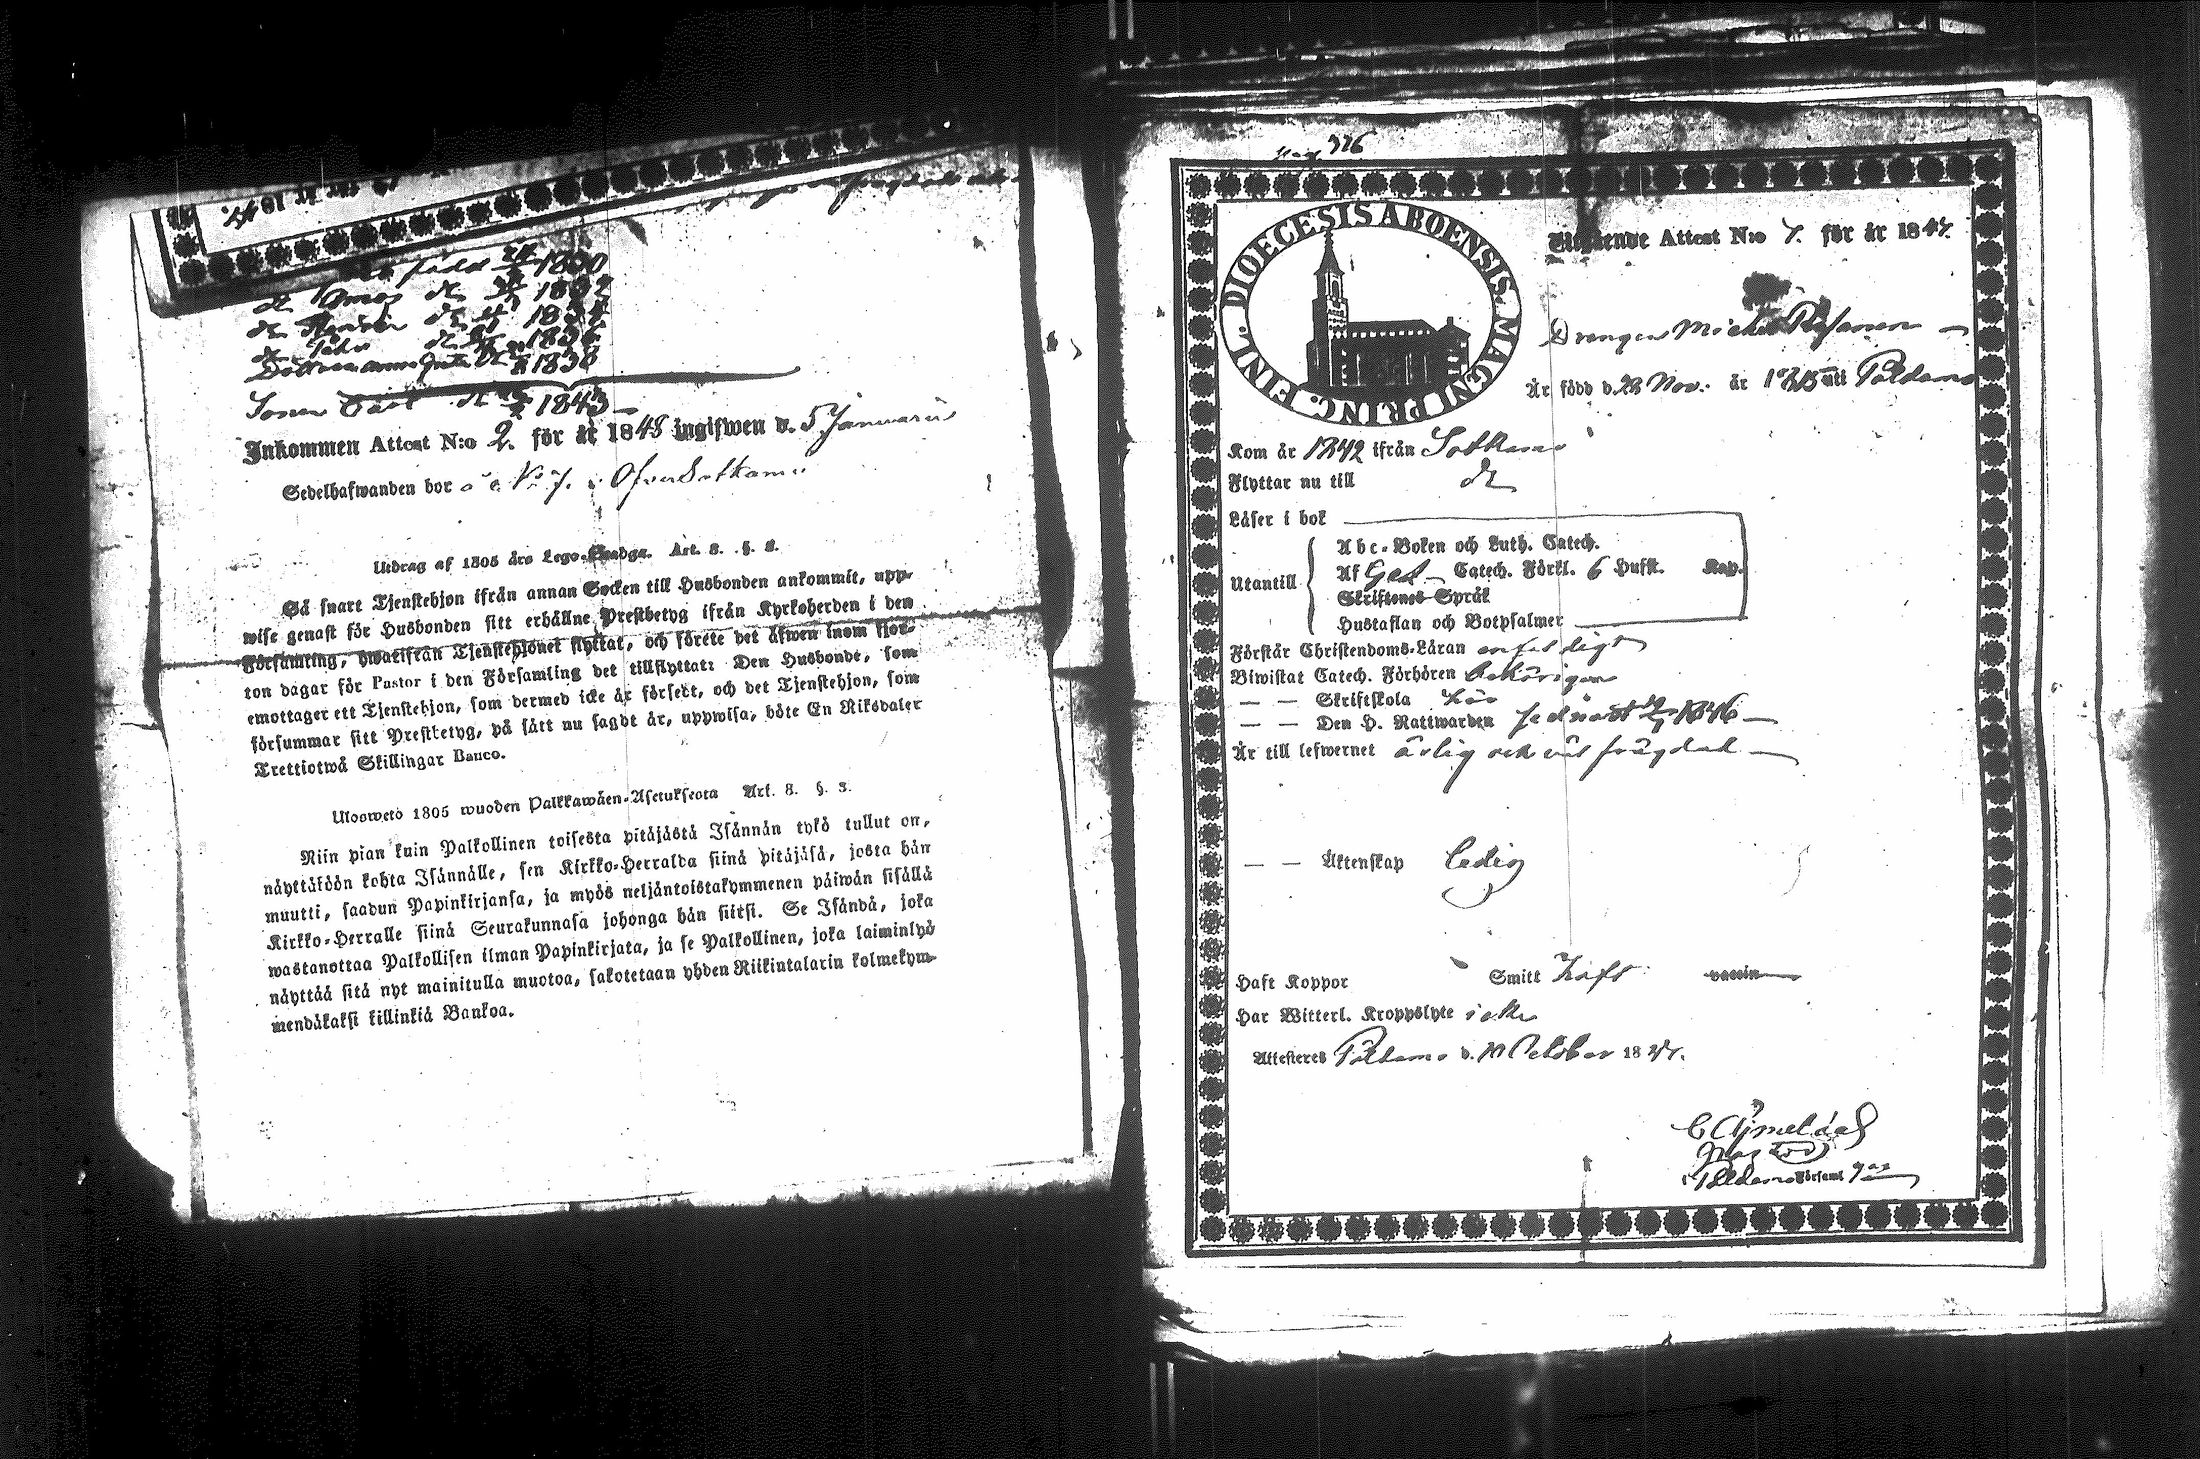 för år 1847.
född 1830
dr 1832
dr 1834
dr 1836
dr 1838
Sonen dr 1843
Inkommen Attest N:o 2. för år 1848 ingifwen d. 5 Januarii
Sedelhafwanden bor N:o 7. Öfver Sotkamo
Utdrag af 1805 års Lego-Stadga. Art. 8. §. 3.
Så snart Tjenstehjon ifrån annan Socken till Husbonden ankommit, upp-
wise genast för Husbonden sitt erhållne Prestbetyg ifrån Kyrkoherden i den
Församling, hwarifrån Tjenstehjonet flyttat, och förete det äfwen inom fjor-
ton dagar för Pastor i den Församling det tillflyttat: Den Husbonde, som
emottager ett Tjenstehjon, som dermed icke är försedt, och det Tjenstehjon, som
försummar sitt Prestbetyg, på sätt nu sagdt är, uppwisa, böte En Riksdaler
Trettiotwå Skillingar Banco.
Uloswetö 1805 wuoden Palkkawäen-Asetuksesta Art. 8. §. 3.
Niin pian kuin Palkollinen toisesta pitäjästä Isännän tykö tullut on,
näyttäköön kohta Isännälle, sen Kirkko-Herralda siinä pitäjäsä, josta hän
muutti, saadun Papinkirjansa, ja myös neljäntoistakymmenen päiwän sisällä
Kirkko-Herralle siinä Seurakunnasa johonga hän siirsi. Se Isändä, joka
wastanottaa Palkollisen ilman Papinkirjata, ja se Palkollinen, joka laiminlyö
näyttää sitä nyt mainitulla muotoa, sakotetaan yhden Riikintalarin kolmekym-
mendäkaksi killinkiä Bankoa.
pag 326
DIOECESIS ABOENSIS. MAGNI PRINC. FINL.
Utgående Attest N:o 7. för år 1847.
Drengen Michel
Är född d. 23 Nov. år 1815 uti Paldamo
Kom år 1842 ifrån Sotkamo
Flyttar nu till dr
Läser i bok
Utantill
Abc-Boken och Luth. Catech.
Af Catech. Förkl. 6 Hufst. Kap.
Skriftenes Språk
Hustaflan och Botpsalmer
Förstår Christendoms-Läran enfaldigt
Biwistat Catech. Förhören behörigen
— — Skriftskola
— — Den H. Nattwarden sednast 1846
Är till lefwernet ärlig och väl frägdad
— — Äktenskap ledig
Haft Koppor Smitt haft vaccin
Har Witterl. Kroppslyte icke
Attesteres Paldamo d. 10 October 1847.
C Ajmelaé
Paldamo Församl